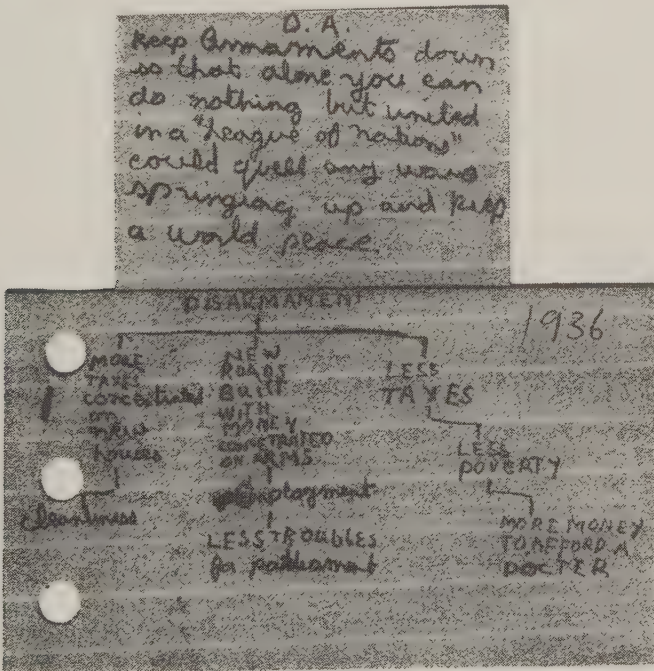 D. A.
keep armaments down
so that alone you can
do nothing but united
in a "league of nations"
could quell any wars
springing up and keep
a world peace
DISARMAMENT
1936
MORE
TAXES
concentrated
on
new
houses
cleanliness
NEW
ROADS
BUILT
WITH
MONEY
CONSTRATED
ON ARMS
employment
LESS TROUBLES
for parliament
LESS
TAXES
LESS
POVERTY
MORE MONEY
TO AFFORD A
DOCTER